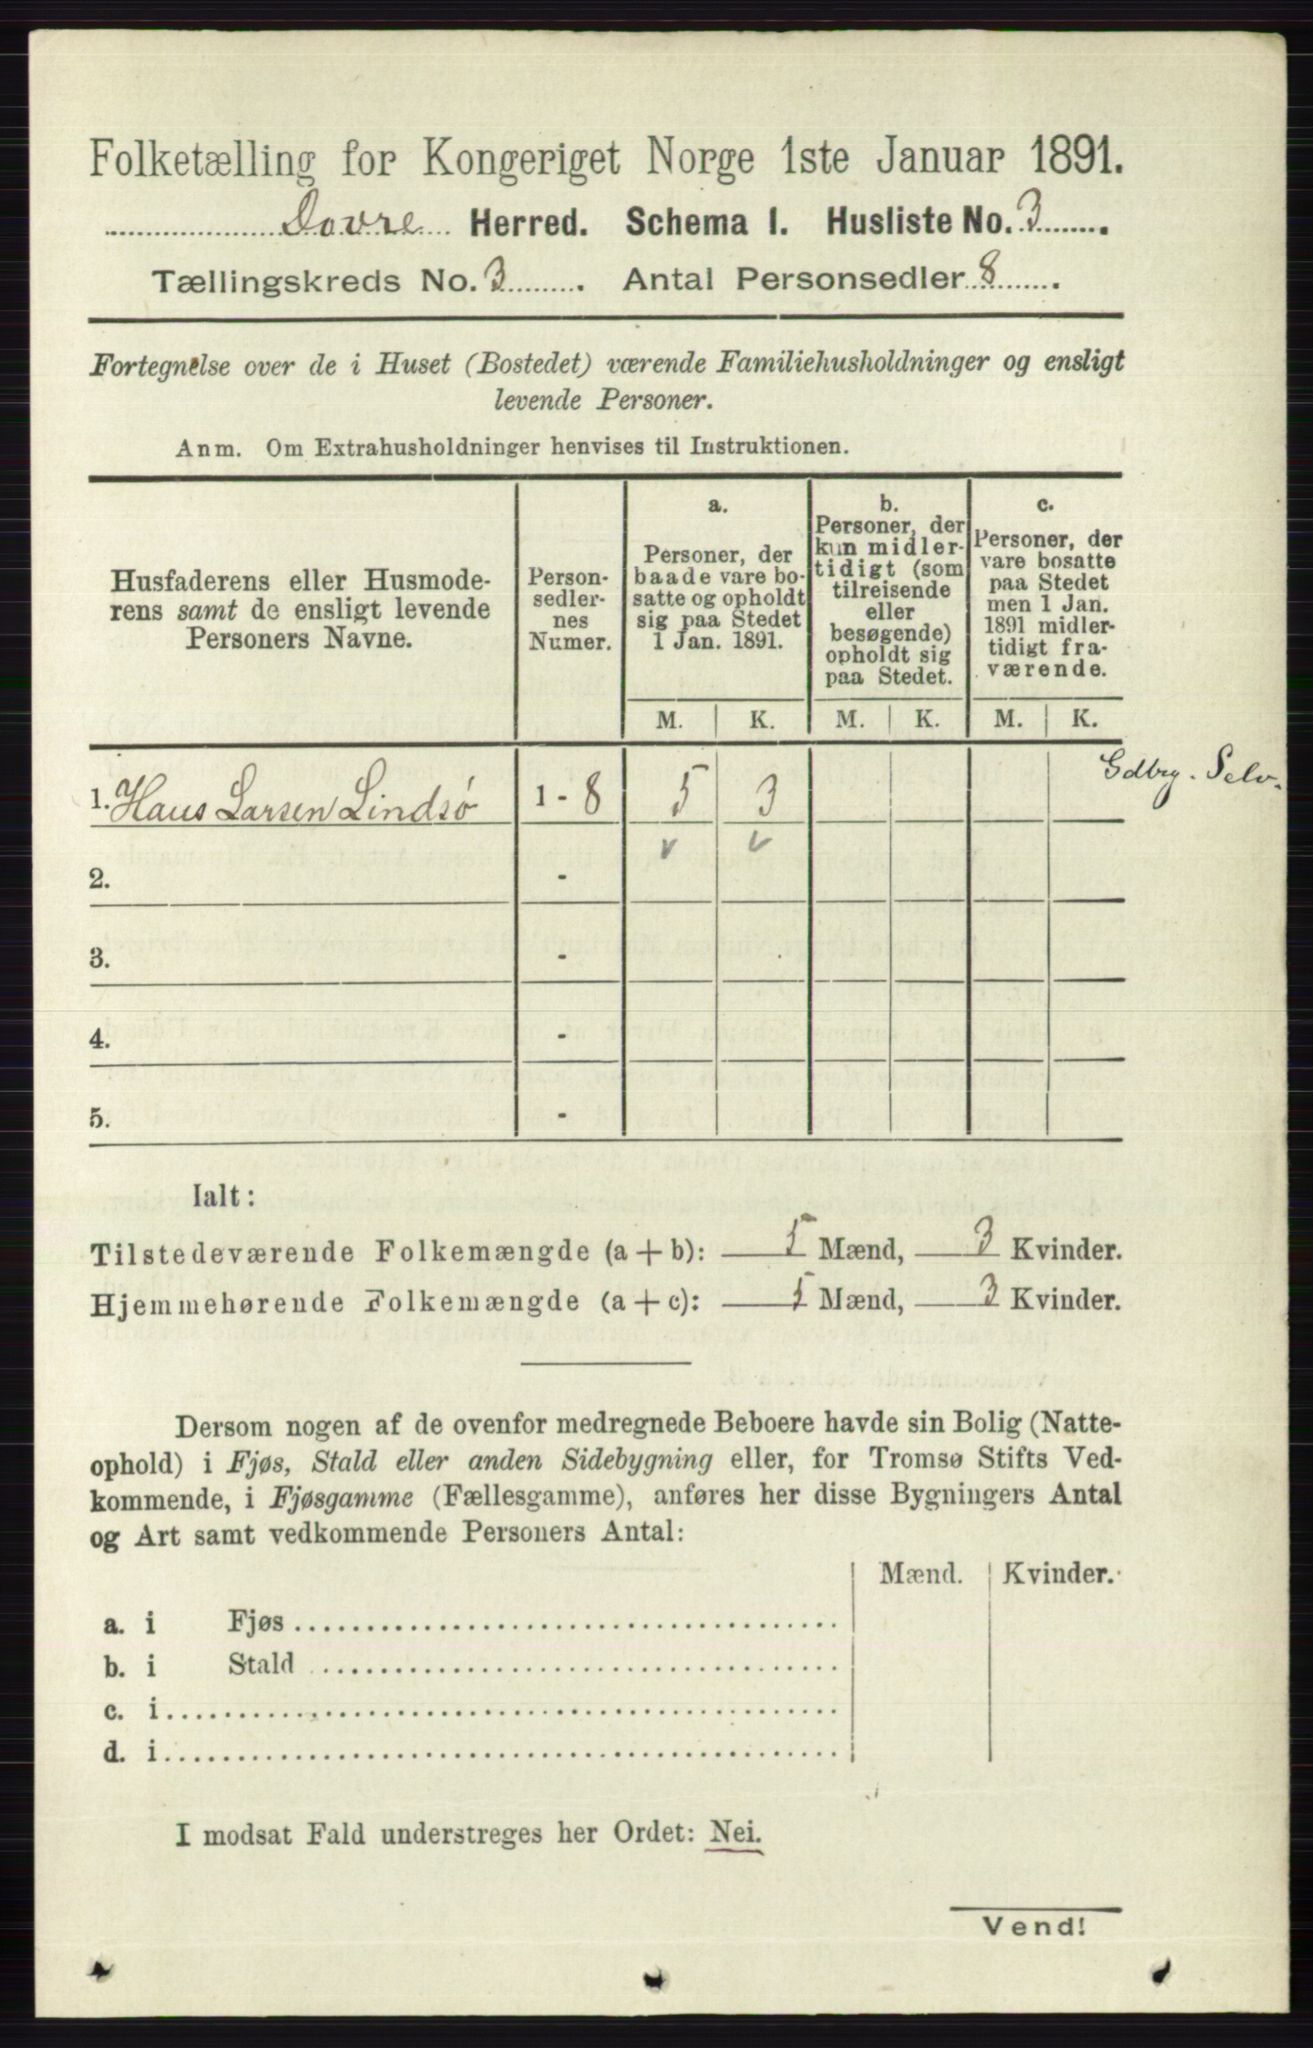 Folketælling for Kongeriget Norge 1ste Januar 1891.
Dovre Herred. Schema I. Husliste No. 3
Tællingskreds No. 3. Antal Personsedler 8.
Fortegnelse over de i Huset (Bostedet) værende Familiehusholdninger og ensligt
levende Personer.
Anm. Om Extrahusholdninger henvises til Instruktionen.
Husfaderens eller Husmode-
rens samt de ensligt levende
Personers Navne.
Person-
sedler-
nes
Numer.
a.
Personer, der
baade vare bo-
satte og opholdt
sig paa Stedet
1 Jan. 1891.
b.
Personer, der
kun midler-
tidigt (som
tilreisende
eller
besøgende)
opholdt sig
paa Stedet.
c.
Personer, der
vare bosatte
paa Stedet
men 1 Jan.
1891 midler-
tidigt fra-
værende.
M. K. M. K. M. K.
1. Hans Larsen Lindsø 1 - 8 5 3 Gdbrg. Selv.
v v
2. -
3. -
4. -
5. -
Ialt:
Tilstedeværende Folkemængde (a + b): 5 Mænd, 3 Kvinder.
Hjemmehørende Folkemængde (a + c): 5 Mænd, 3 Kvinder.
Dersom nogen af de ovenfor medregnede Beboere havde sin Bolig (Natte-
ophold) i Fjøs, Stald eller anden Sidebygning eller, for Tromsø Stifts Ved-
kommende, i Fjøsgamme (Fællesgamme), anføres her disse Bygningers Antal
og Art samt vedkommende Personers Antal:
Mænd. Kvinder.
a. i Fjøs
b. i Stald
c. i
d. i
I modsat Fald understreges her Ordet: Nei.
Vend!